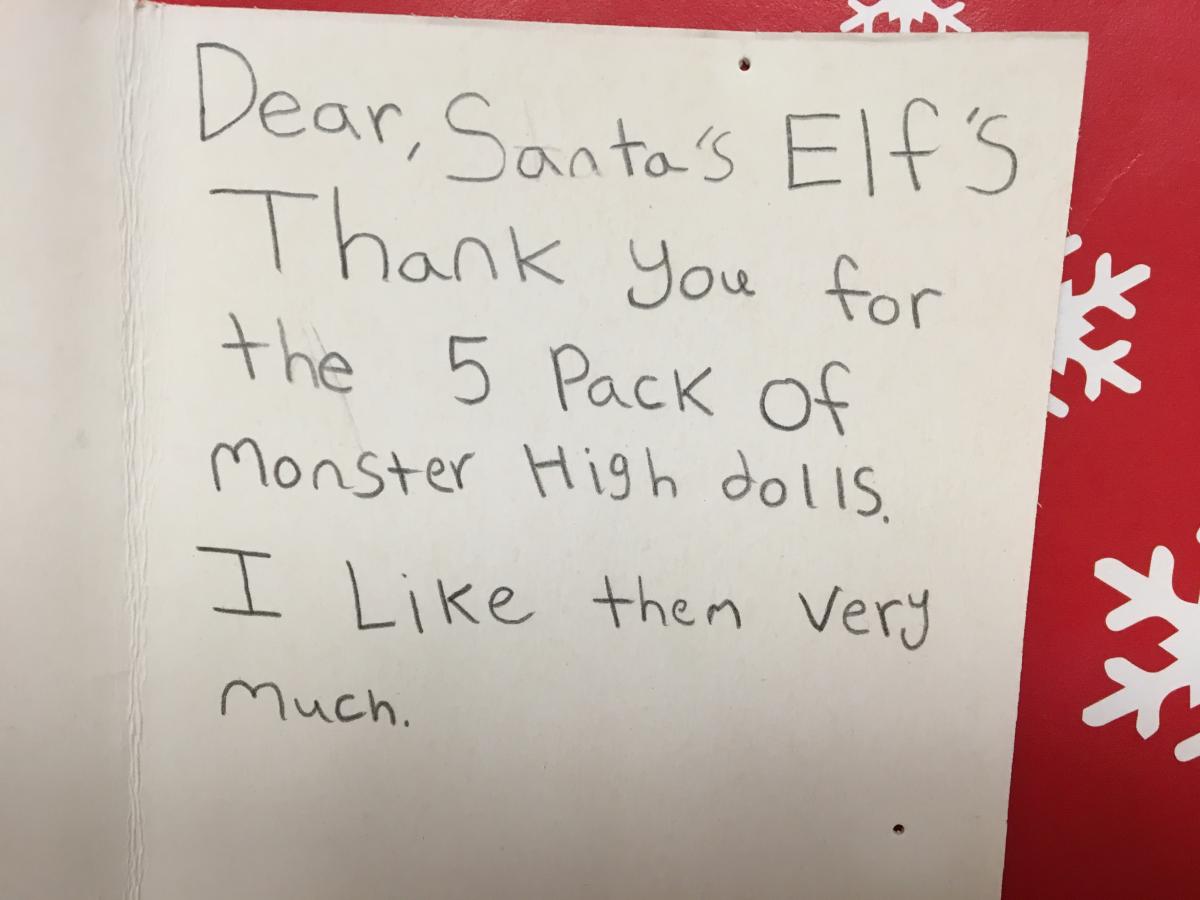 Dear, Santa's Elf's
Thank you for
the 5 Pack of
Monster High dolls.
I Like them very
much.